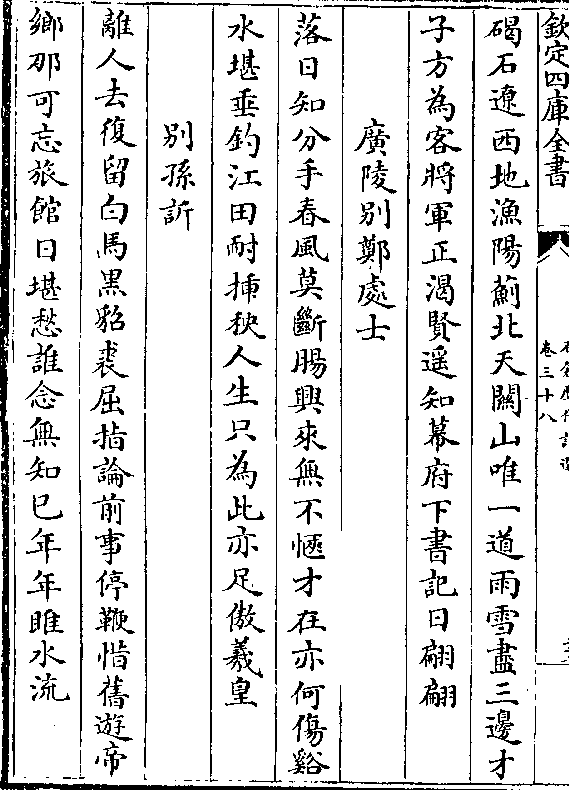 欽定四庫全書
卷三十八
碣石遼西地漁陽薊北天關山唯一道雨雪盡三邊才
子方為客將軍正渴賢遥知幕府下書記日翩翩
廣陵别鄭處士
落日知分手春風莫斷腸興來無不愜才在亦何傷谿
水堪垂釣江田耐揷秧人生只為此亦足傲羲皇
别孫訢
離人去復留白馬黒貂裘屈指論前事停鞭惜舊遊帝
鄉那可忘旅館日堪愁誰念無知已年年睢水流